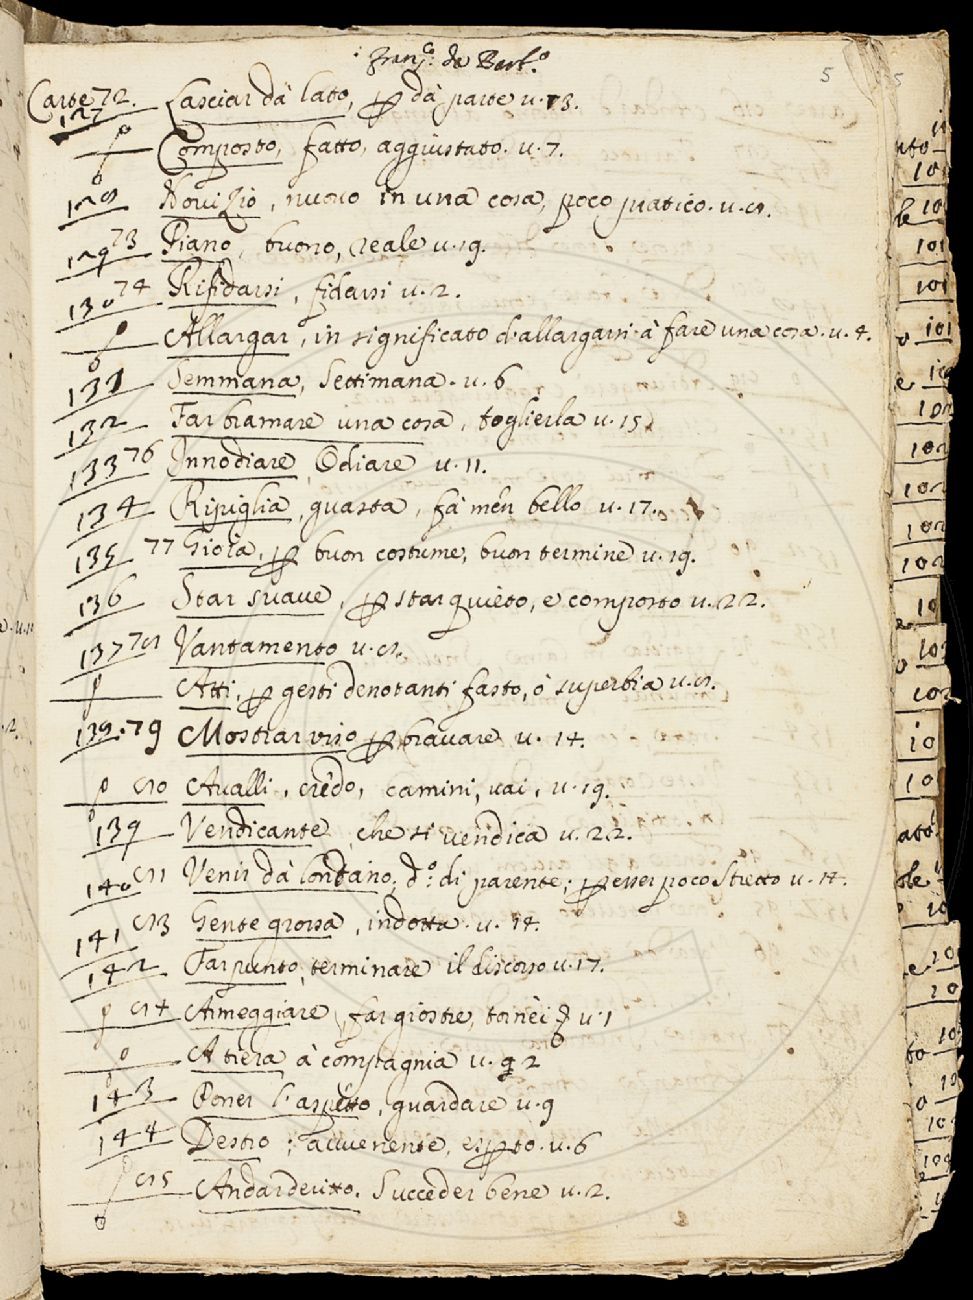 Franc.o da Barb.o
5
Carte 72.
127 Lasciar dà lato, per dà parte u. 13.
Composto, fatto, aggiustato. u. 7.
128 Novizio, nuovo in una cosa, poco pratico. u. 8.
129 73 Piano, buono, reale u. 19.
130 74 Rifidarsi, fidarsi u. 2.
Allargar, in significato d'allargarsi à fare una cosa. u. 4.
131 Semmana, Settimana. u. 6
132 Far bramare una cosa, toglierla u. 15
133 76 Innodiare, Odiare u. 11.
134 Ripiglia, guasta, fà men bello u. 17.
135 77 Gioia, per buon costume, buon termine u. 19.
136 Star suave, per star quieto, e composto u. 22.
137 78 Vantamento u. 8.
Atti, per gesti denotanti fasto, ò superbia u. 8.
138. 79 Mostrar viso per bravare u. 14.
80 Avalli, credo, camini, vai, u. 19.
139 Vendicante, che si vendica u. 22.
140 81 Venir dà lontano, d.o di parente, per esser poco stretto u. 14.
141 83 Gente grossa, indotta. u. 14.
142 Far punto, terminare il discorso u. 17.
84 Armeggiare, far giostre, tornèi u. 1
A tiera à compagnia u. 2
143 Poner l'aspetto, guardare u. 9
144 Destro, avvenente, esperto. u. 6
85 Andar deritto. Succeder bene u. 2.